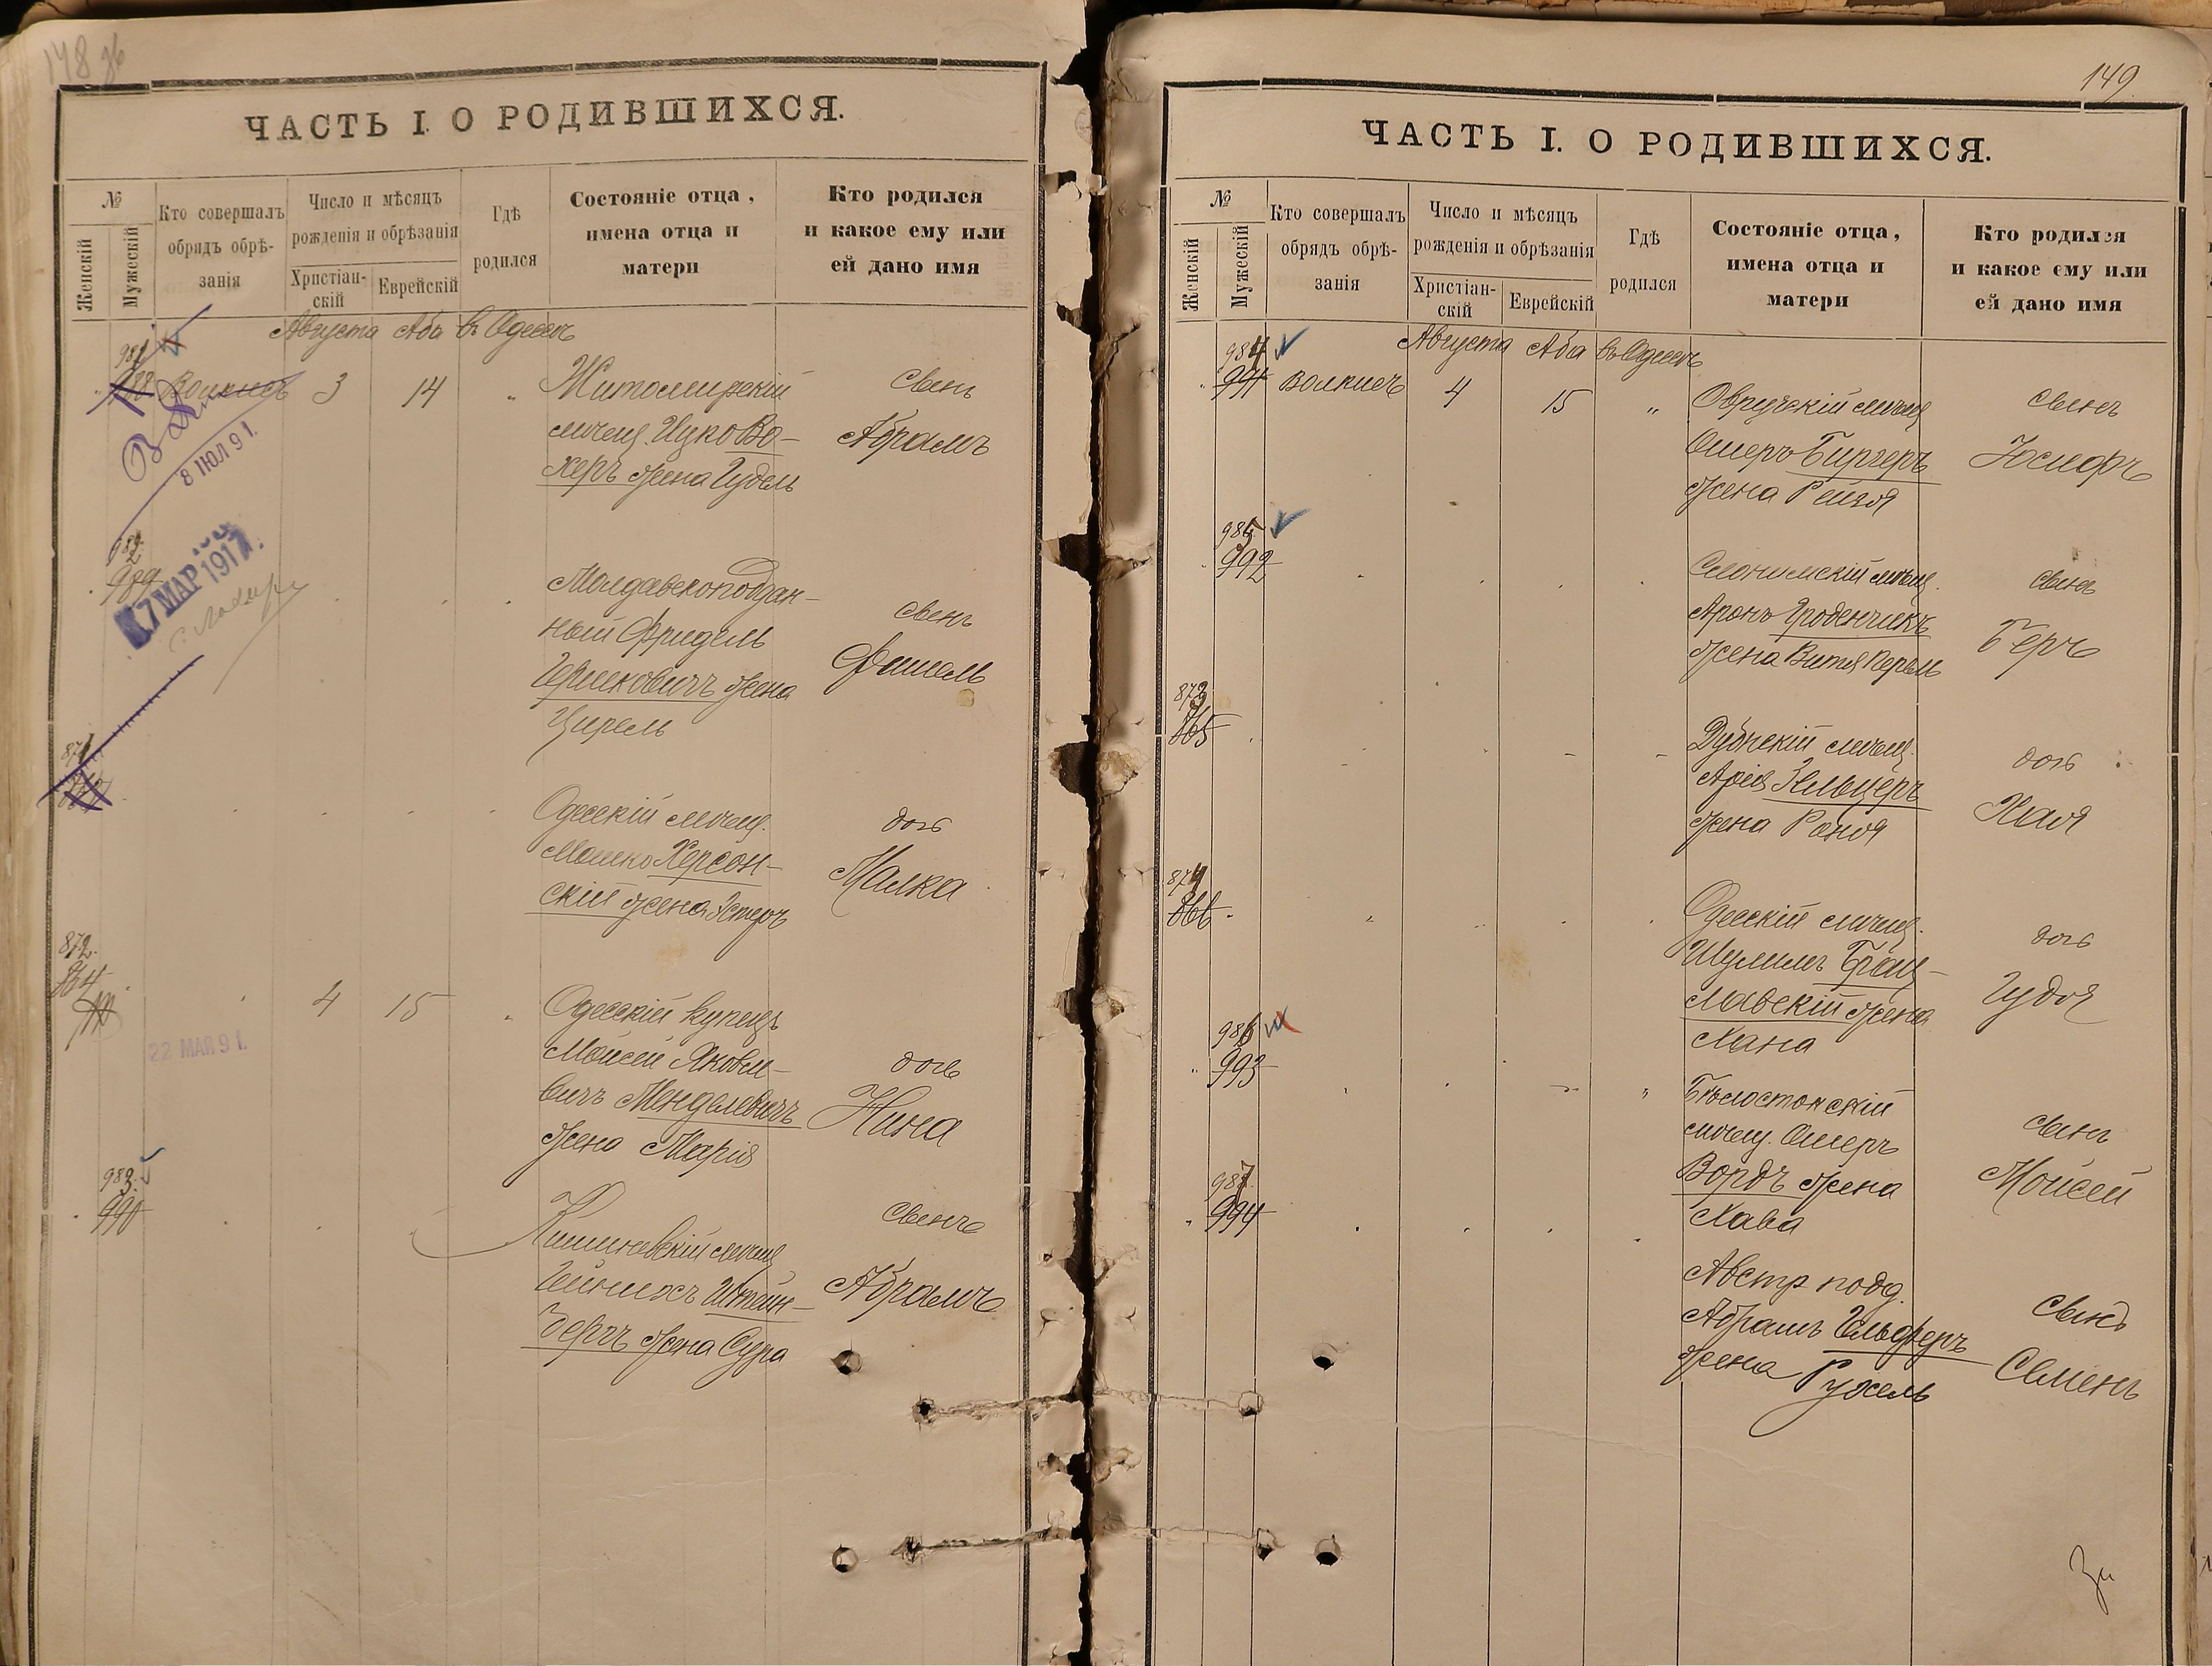 148 об
ЧАСТЬ I. О РОДИВШИХСЯ.
№
Женскій
Мужескій
Кто совершалъ
обрядъ обрѣ-
занія
Число и мѣсяцъ
рожденія и обрѣзанія
Христіан-
скій
Еврейскій
Гдѣ
родился
Состояніе отца,
имена отца и
матери
Кто родился
и какое ему или
ей дано имя
Августа Аба въ Одессѣ
981
988 Волкисъ 3 14 " Житомирскій сынъ
мѣщ. Ицко Во-
херъ жена Гудель
Абрамъ
8 ІЮЛ 91.
982
989
7 МАР 1917.
Молдавскоподдан-
ный Фридель
Гершковичъ жена
Цирель
сынъ
Фишель
871
Одесскій мѣщ.
Мошко Херсон-
скій жена Эстеръ
дочь
Малка
872.
864
22 МАЯ 91.
4 15 " Одесскій купецъ
Мойсей Яковле-
вичъ Менделевичъ
жена Марія
дочь
Нина
983.
990
Кишиневскій мѣщ.
Штейн-
бергъ жена Сура
сынъ
Абрамъ
149.
ЧАСТЬ I. О РОДИВШИХСЯ.
№
Женскій
Мужескій
Кто совершалъ
обрядъ обрѣ-
занія
Число и мѣсяцъ
рожденія и обрѣзанія
Христіан-
скій
Еврейскій
Гдѣ
родился
Состояніе отца,
имена отца и
матери
Кто родился
и какое ему или
ей дано имя
Августа Аба въ Одессѣ
984
991 Волкисъ 4 15 " Овручскій мѣщ.
Ошеръ Бургеръ
жена Рейзя
сынъ
Іосифъ
985
992
Слонимскій мѣщ.
Аронъ Гроденчикъ
жена Витя Перель
сынъ
Беръ
873
865
Дубнскій мѣщ.
Арія Зельцеръ
жена Раня
дочь
Хая
874
866
Одесскій мѣщ.
Шулимъ Брац-
лавскій жена
Хана
дочь
Гудя
986
993
Бѣлостокскій
мѣщ. Ошеръ
Вордъ жена
Хава
сынъ
Мойсей
987
994
Австр подд.
Абрамъ Гельферъ
жена Рухель
сынъ
Семенъ